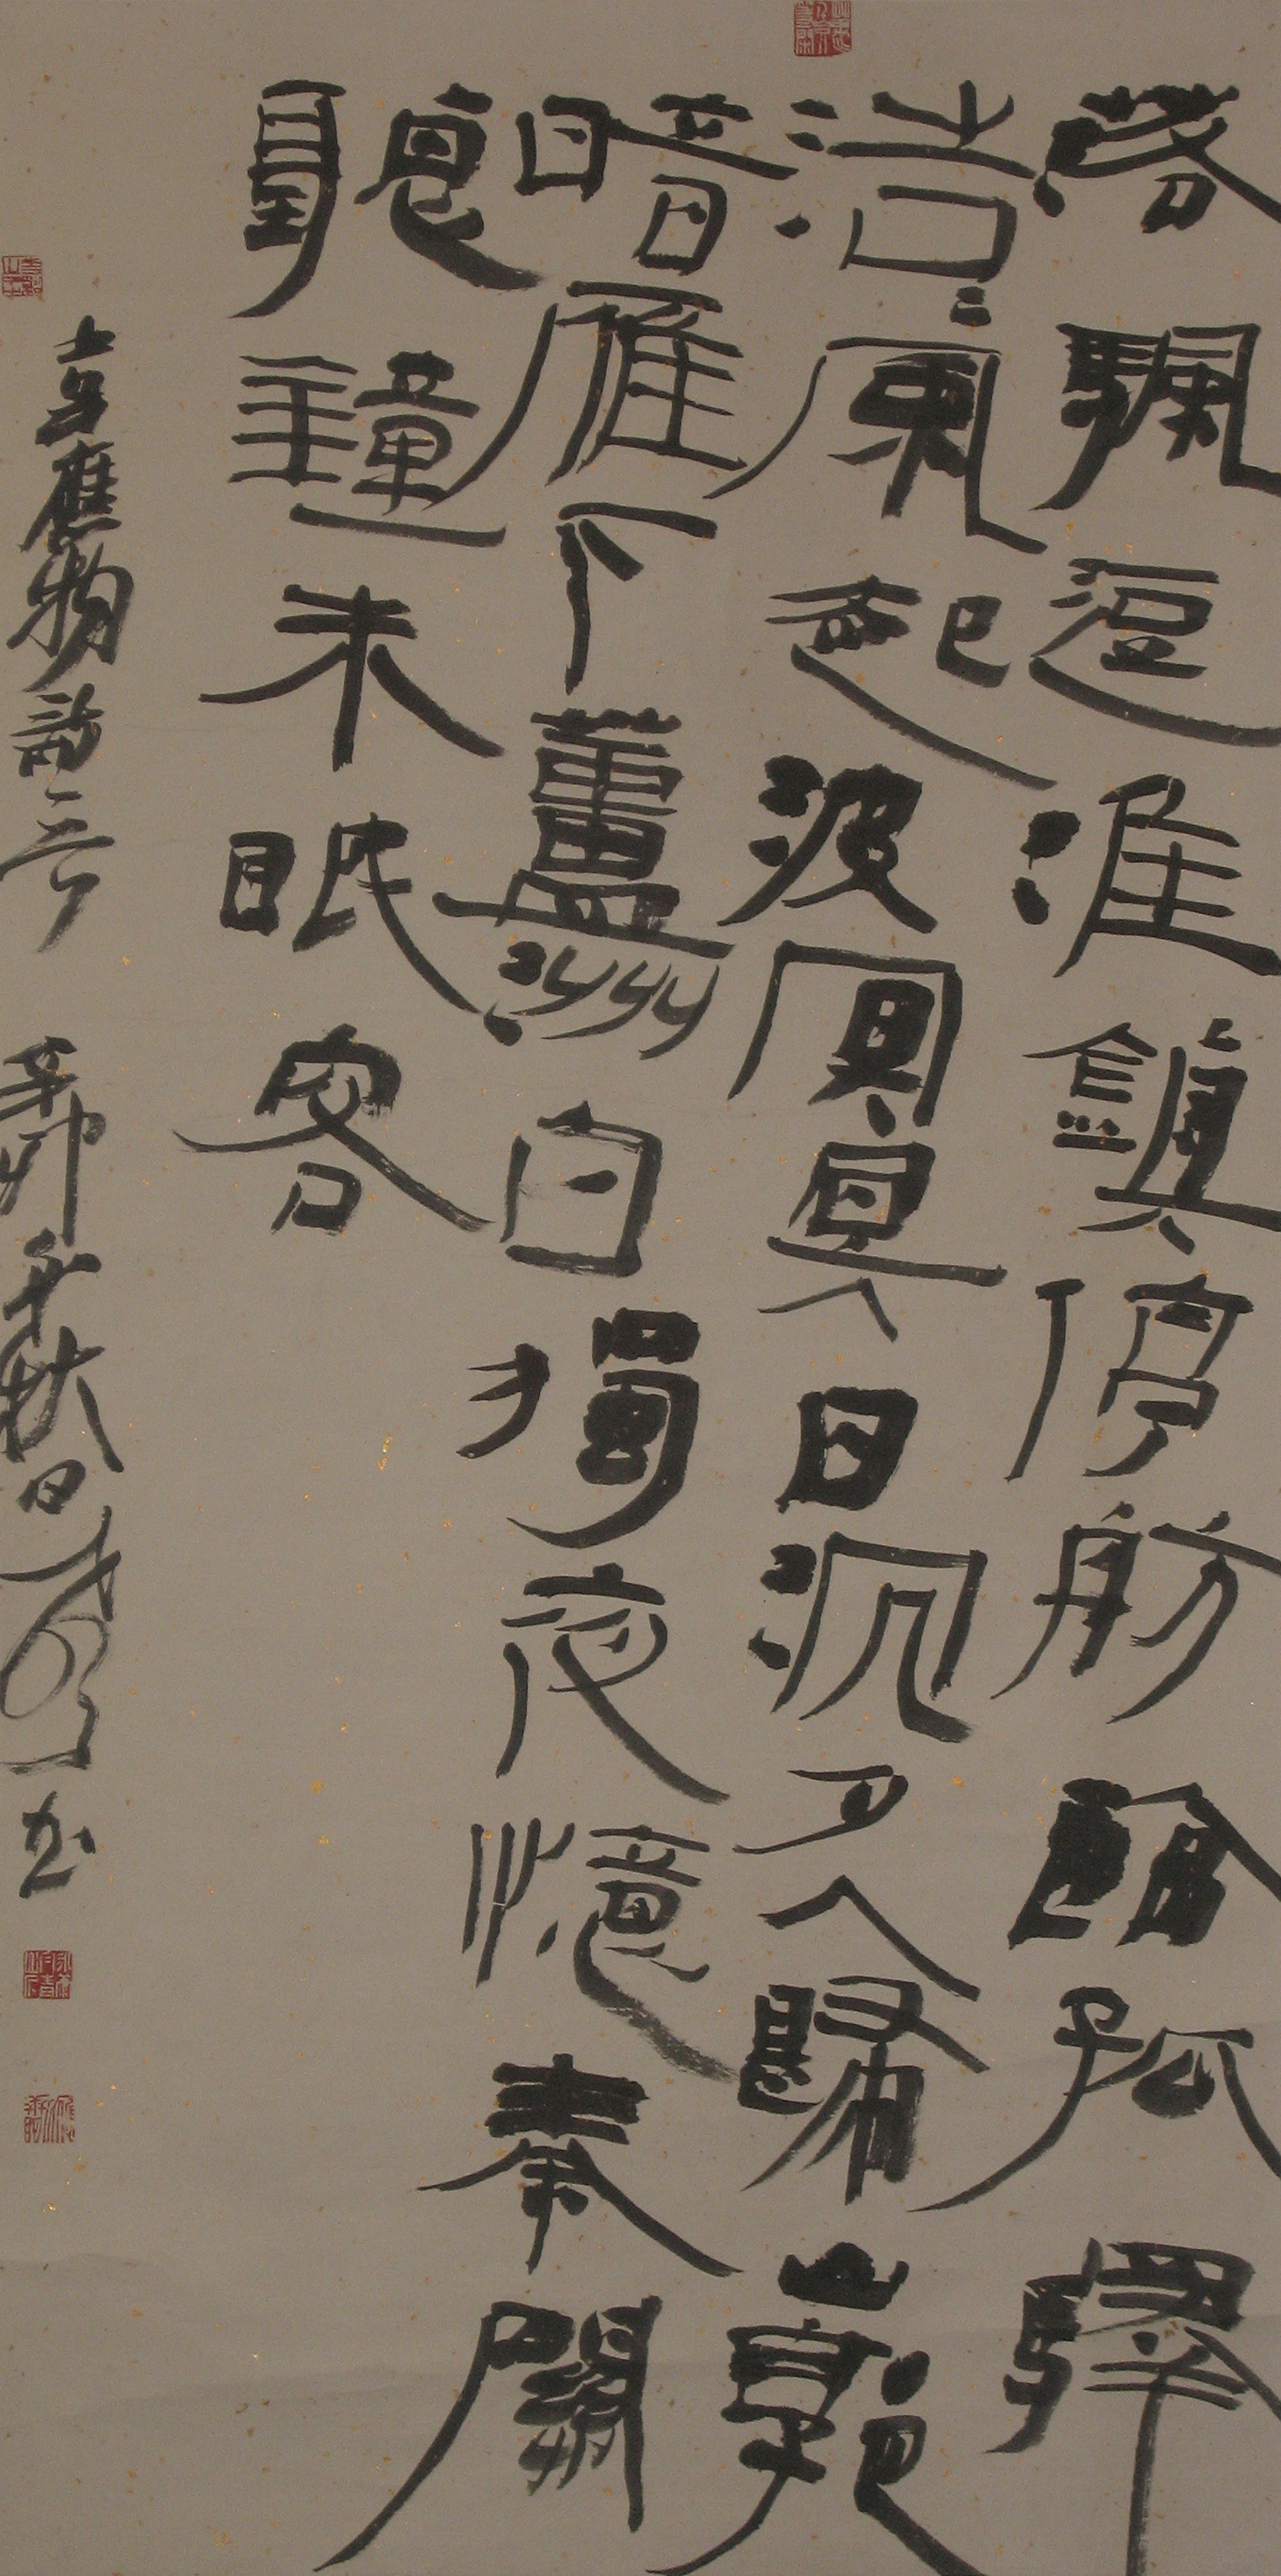 落颿逗淮鎮停舫臨孤驛
浩〻風起波冥冥日沉夕人歸山郭
暗雁下蘆洲白獨夜憶秦關
聽鐘未眠客
韋應物詩一首 辛卯年秋日 书